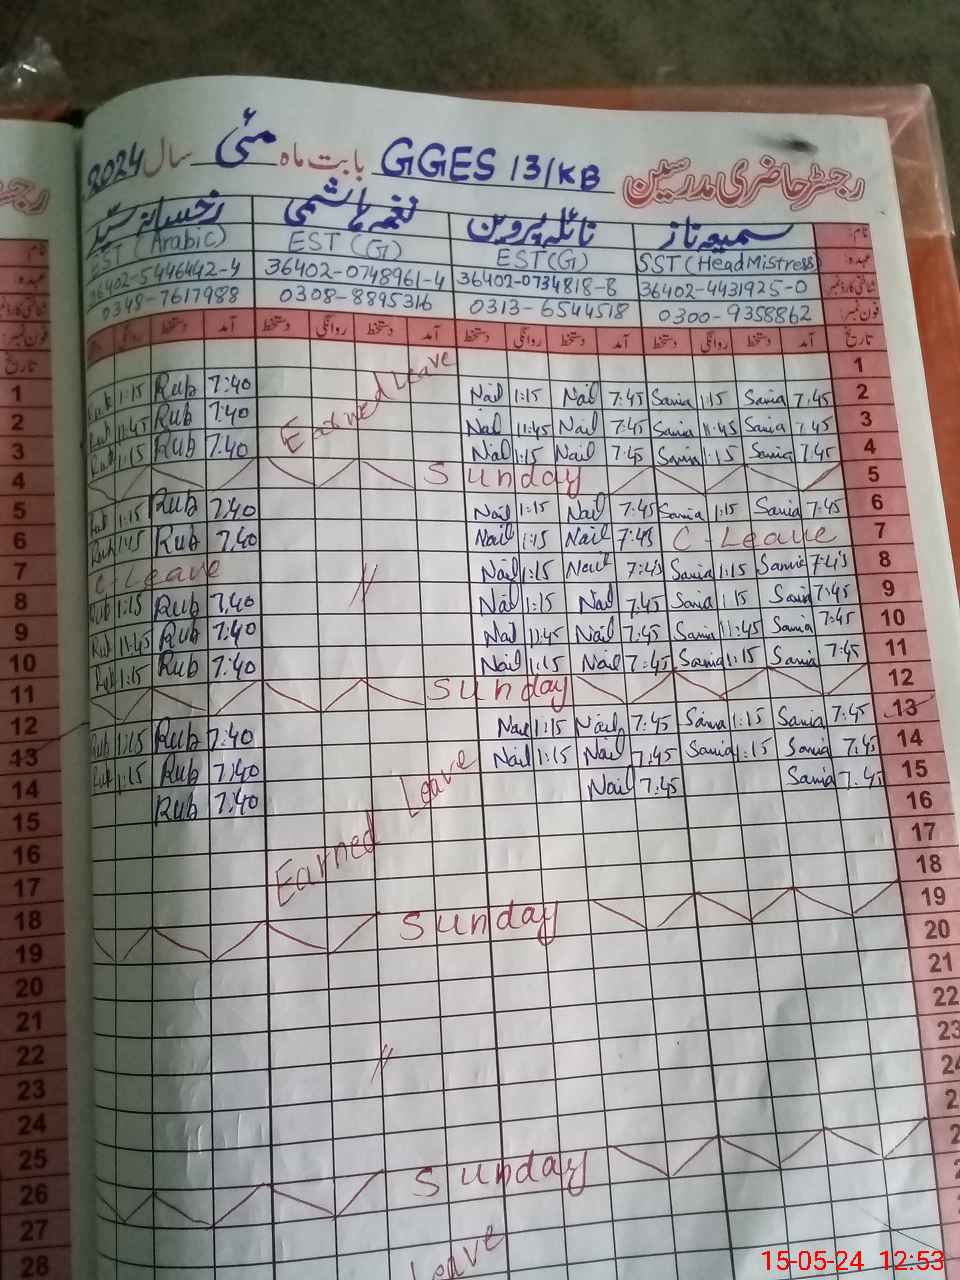 رجسٹر حاضری مدرسین GGES 13/KB بابت ماہ مئی سال 2024
نام: سمیعہ ناز نائلہ پروین نغمہ ہاشمی رخسانہ سید
عہدہ: SST (HeadMistress) EST(G) EST (G) EST (Arabic)
شناختی کارڈ نمبر: 36402-4431925-0 36402-0734818-8 36402-0748961-4 36402-5446442-4
فون نمبر: 0300-9358862 0313-6544518 0308-8895316 0348-7617988
تاریخ آمد دستخط روانگی دستخط آمد دستخط روانگی دستخط آمد دستخط روانگی دستخط آمد دستخط روانگی
1
2 7:45 Sania 1:15 Sania 7:45 Nail 1:15 Nail Earned Leave 7:40 Rub 1:15 Rub
3 7:45 Sania 11:45 Sania 7:45 Nail 11:45 Nail 7:40 Rub 11:45 Rub
4 7:45 Sania 1:15 Sania 7:45 Nail 1:15 Nail 7:40 Rub 1:15 Rub
5 Sunday
6 7:45 Sania 1:15 Sania 7:45 Nail 1:15 Nail 7:40 Rub 1:15 Rub
7 C-Leave 7:45 Nail 1:15 Nail 7:40 Rub 1:15 Rub
8 7:45 Sania 1:15 Sania 7:45 Nail 1:15 Nail C-Leave
9 7:45 Sania 1:15 Sania 7:45 Nail 1:15 Nail 7:40 Rub 1:15 Rub
10 7:45 Sania 11:45 Sania 7:45 Nail 11:45 Nail 7:40 Rub 11:45 Rub
11 7:45 Sania 1:15 Sania 7:45 Nail 1:15 Nail 7:40 Rub 1:15 Rub
12 Sunday
13 7:45 Sania 1:15 Sania 7:45 Nail 1:15 Nail 7:40 Rub 1:15 Rub
14 7:45 Sania 1:15 Sania 7:45 Nail 1:15 Nail 7:40 Rub 1:15 Rub
15 7:45 Sania 7:45 Nail 7:40 Rub
16 Earned Leave
17
18
19 Sunday
20
21
22
23
Sunday
Leave
تاریخ
1
2
3
4
5
6
7
8
9
10
11
12
13
14
15
16
17
18
19
20
21
22
23
24
25
26
27
28
15-05-24 12:53